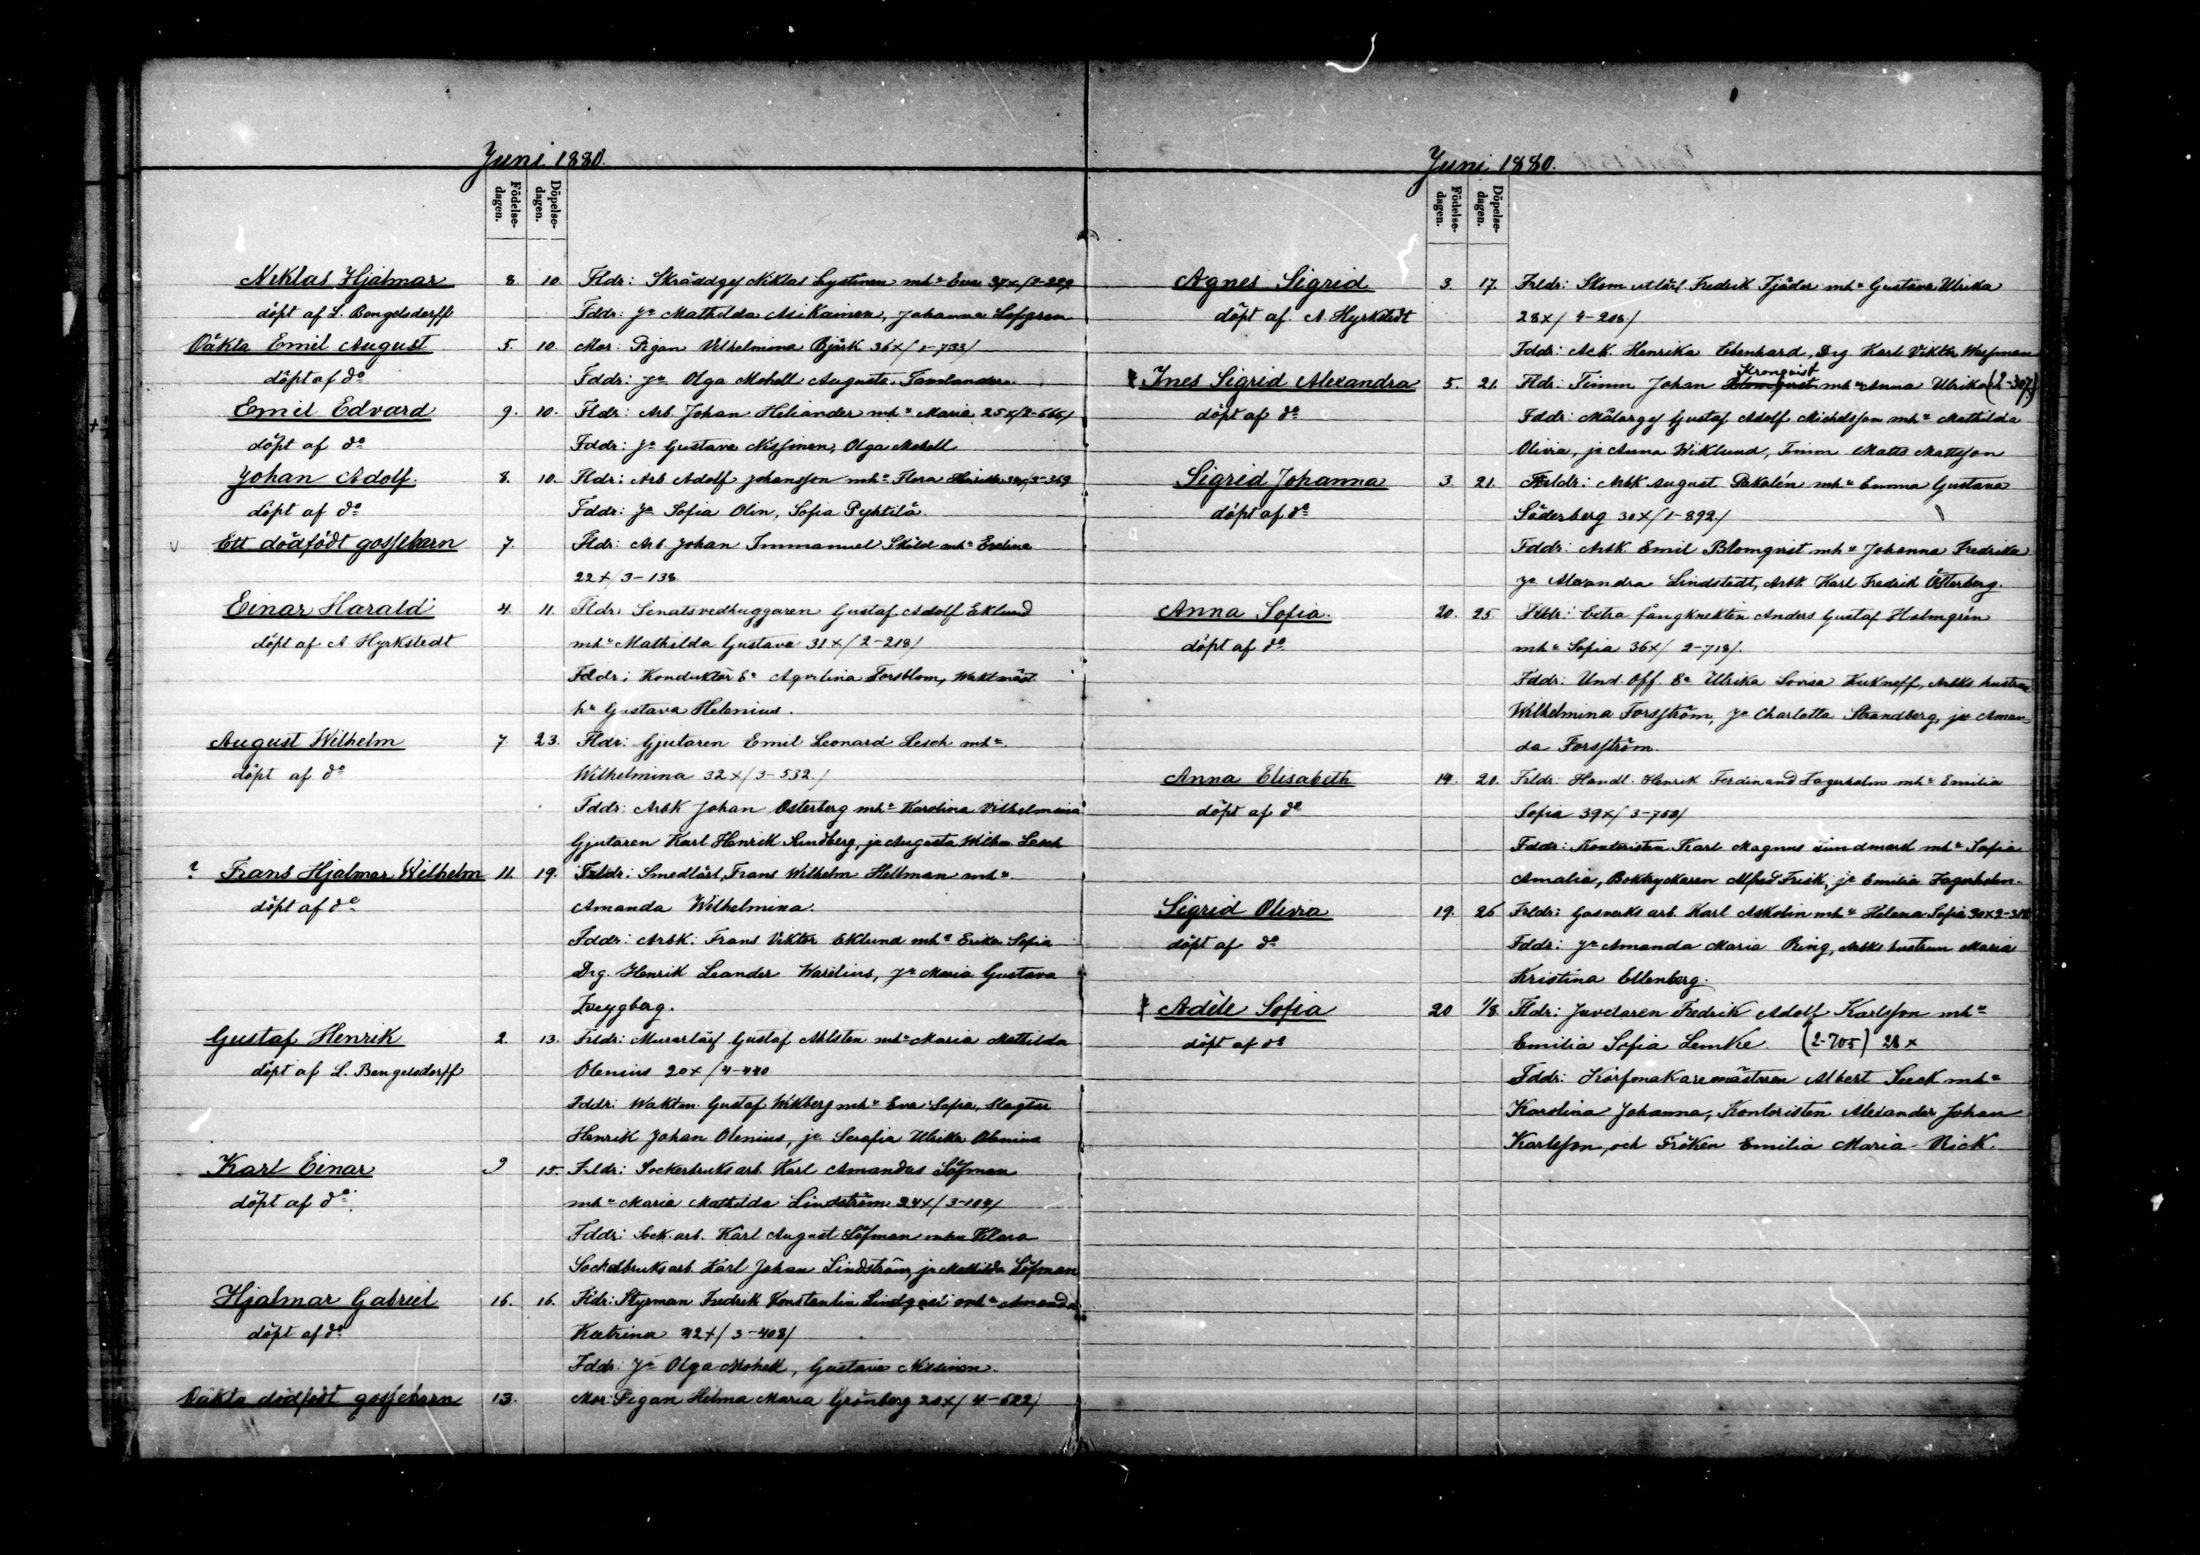 Juni 1880.
Födelse-
dagen.
Döpelse-
dagen.
Niklas Hjalmar 8. 10. Fldr: Skräddges Niklas Lyytinen mha Eva
döpt af L. Bengelsdorff Fddr: ja Mathilda Asikainen, Johanna Lofgren
Oäkta Emil August 5. 10. Mor: Pigan Vilhelmina Björk 36x/1-733/
döpt af do Fddr: ja Olga Mohell Augusta Tamlander
Emil Edvard 9. 10. Fldr: Arb Johan Heliander mha Maria 25x/2-666/
döpt af do Fddr: ja Gustava Nissinen, Olga Mohell
Johan Adolf 8. 10. Fldr: Arb Adolf Johansson mha Flora
döpt af do Fddr: ja Sofia Olin, Sofia Pyhtilä.
Ett dödfödt gossebarn 7. Fldr: Arb. Johan Immanuel Sköld mha Evelina
22x/3-138
Einar Harald 4. 11. Fldr: Senatsvedhuggaren Gustaf Adolf Eklund
döpt af A Hyrkstedt mha Mathilda Gustava 31x/2-218/
Fddr: Konduktör ba Aqvilina Forsblom, Waktmäst
ha Gustava Helenius.
August Wilhelm 7. 23. Fldr: Gjutaren Emil Leonard Lesch mha
döpt af do Wilhelmina 32x/3-532./
Fddr: Arbk Johan Osterberg mha Karolina Vilhelmina
Gjutaren Karl Henrik Sundberg, ja Augusta Wilhn Lesch
? Frans Hjalmar Wilhelm 11. 19. Frldr: Smedlärl. Frans Wilhelm Hellman mha
döpt af do Amanda Wilhelmina.
Fddr: Arbk: Frans Viktor Eklund mha Erika Sofia
Drg. Henrik Leander Warelius, ja Maria Gustava
Zweygberg.
Gustaf Henrik 2. 13. Frldr: Murarlärl Gustaf Ahlsten mha Maria Mathilda
döpt af L. Bengelsdorff Olenius 20x/4-440
Fddr: Waktm. Gustaf Wikberg mha Eva Sofia, Slagtar
Henrik Johan Olenius, ja Serafia Ulrika Olenius
Karl Einar 9 15. Frldr: Sockerbruksarb. Karl Amandus Löfman
döpt af do. mha Maria Mathilda Lindström 24x/3-104/
Fddr: Sock.arb. Karl August Löfman mha Klara
Sockerbruksarb. Karl Johan Lindström, ja Mathilda Löfman
Hjalmar Gabriel 16. 16. Fldr: Styrman Fredrik Konstantin Lindqvist mha Amanda
döpt af do Katrina 42x/3-408/
Fddr: ja Olga Mohell, Gustava Nissinen.
Oäkta dödfödt gossebarn 13. Mor: Pigan Helma Maria Grönberg 20x/4-622/
Juni 1880.
Födelse-
dagen.
Döpelse-
dagen.
Agnes Sigrid 3. 17. Frldr: Skom utlärl Fredrik Tjäder mha Gustava Ulrika
döpt af A Hyrkstedt 28x/4-208/
Fddr: Ack. Henrika Ebenhard, Drg Karl Viktor Wesman
Kronqvist
Ines Sigrid Alexandra 5. 21. Fldr: Timm Johan Blomqvist mha Anna Ulrika (2-307.)
döpt af do Fddr: Målarges Gustaf Adolf Michelsson mha Mathilda
Olivia, ja Anna Wiklund, Timm Matts Mattsson
Sigrid Johanna 3. 21. Frldr: Arbk August Pakalén mha Emma Gustava
döpt af do Söderberg 30x/1-892./
Fddr: Arbk. Emil Blomqvist mha Johanna Fredrika
ja Alexandra Lindstedt, Arbk Karl Fredrik Österberg.
Anna Sofia. 20. 25 Fldr: Extra fångknekten Anders Gustaf Holmgrén
döpt af do mha Sofia 36x/2-718/.
Fddr: Und. Off. Ea Ulrika Lovisa Kukneff, Arbks hustrun
Wilhelmina Forsström, ja Charlotta Strandberg, ja Aman-
da Forsström.
Anna Elisabeth 14. 20. Frldr: Handl. Henrik Ferdinand Fagerholm mha Emilia
döpt af do Sofia 39x/3-750/
Fddr: Kontoristen Karl Magnus Sundmark mha Sofia
Amalia, Boktryckaren Alfred Frisk, ja Emilia Fagerholm.
Sigrid Olivia 19. 26 Frldr: Gasverks arb. Karl Askolin mha Helena Sofia
döpt af do Fddr: ja Amanda Maria Ring, Arbks hustrun Maria
Kristina Ellenberg.
Adèle Sofia 20 1/8. Fldr: Juvelaren Fredrik Adolf Karlsson mha
döpt af do Emilia Sofia Lemke. (2-705) 28x
Fddr: Korfmakaremästeren Albert Seeck mha
Karolina Johanna, Kontoristen Alexander Johan
Karlsson, och Fröken Emilia Maria Rick.